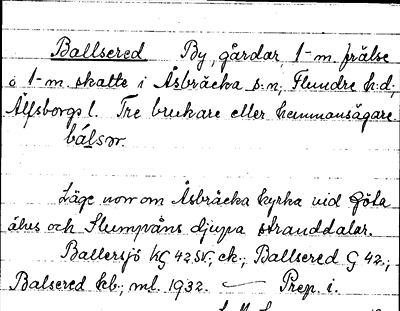 Ballsered By, gårdar, 1-m. frälse
o 1-m. skatte i Åsbräcka s:n, Flundre h:d,
Älfsborgs l. Tre brukare eller hemmansägare.
Läge norr om Åsbräcka kyrka vid Göta
älvs och Slumpåns djupa stranddalar.
Ballersjö KG 42 SV, ek.; Ballsered G 42;
Balsered kb; ml. 1932. — Prep. i.